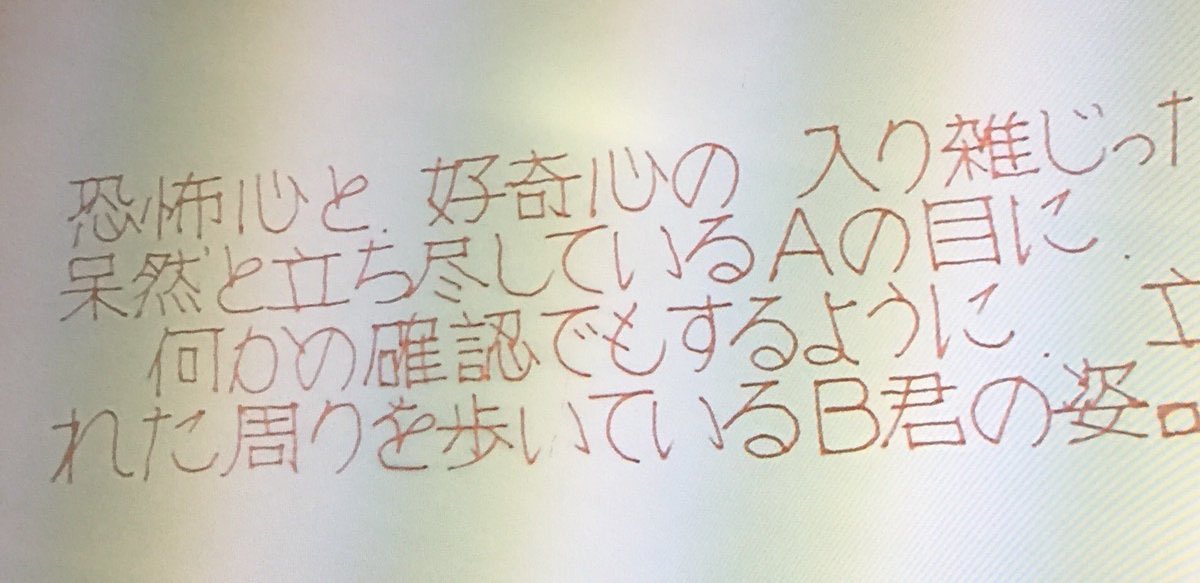 恐怖心と、好奇心の 入り雑じった
呆然と立ち尽しているAの目に、
何かの確認でもするように、 立
れた周りを歩いているB君の姿。